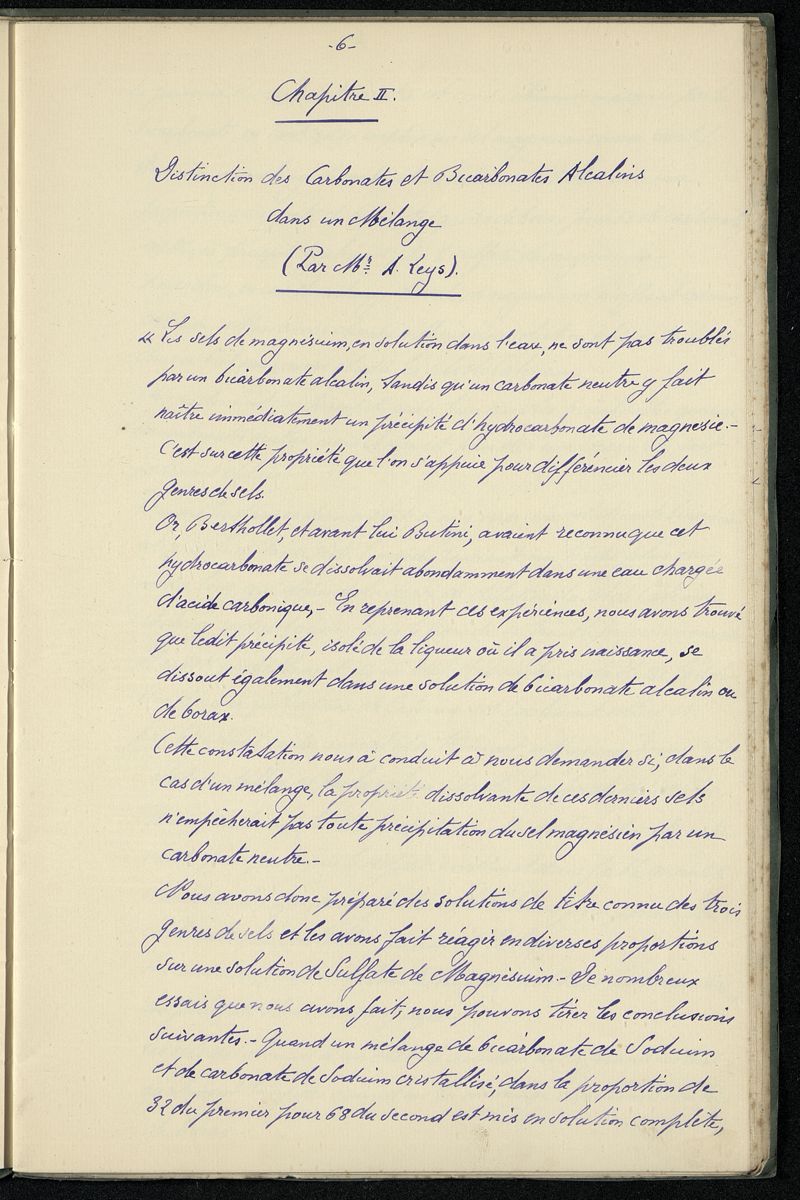 -6-
Chapitre II.
Distinction des Carbonates et Bicarbonates Alcalins
dans un Mélange
(Par Mr. A. Leys).
« Les sels de magnésium, en solution dans l'eau, ne sont pas troublés
par un bicarbonate alcalin, tandis qu'un carbonate neutre y fait
naître immédiatement un précipité d'hydrocarbonate de magnésie.-
C'est sur cette propriété que l'on s'appuie pour différencier les deux
genres de sels.
Or, Berthollet, et avant lui Butini, avaient reconnu que cet
hydrocarbonate se dissolvait abondamment dans une eau chargée
d'acide carbonique,- En reprenant ces expériences, nous avons trouvé
que ledit précipité, isolé de la liqueur où il a pris naissance, se
dissout également dans une solution de bicarbonate alcalin ou
de borax.
Cette constatation nous a conduit à nous demander si, dans le
cas d'un mélange, la propriété dissolvante de ces derniers sels
n'empêcherait pas toute précipitation du sel magnésien par un
carbonate neutre.-
Nous avons donc préparé des solutions de titre connu des trois
genres de sels et les avons fait réagir en diverses proportions
sur une solution de Sulfate de Magnésium.- De nombreux
essais que nous avons fait, nous pouvons tirer les conclusions
suivantes.- Quand un mélange de bicarbonate de Sodium
et de carbonate de Sodium cristallisé, dans la proportion de
32 du premier pour 68 du second est mis en solution complète,